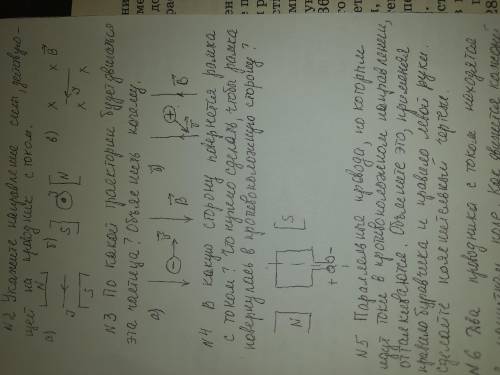 N2 Укажите направление сил, действую-
щей на проводник с током.
а) N S б) S N в) x x B x x
N3 По какой траектории будет двигаться
эта частица? Объяснить почему.
а) - v B б) + v B
N4 В какую сторону повернётся рамка
с током? Что нужно сделать чтобы рамка
повернулась в противоположную сторону?
N S
+ -
N5 Параллельные провода, по которым
идут токи в противоположном направлении,
отталкиваются. Объясните это, применяя
правило буравчика и правило левой руки.
Сделайте пояснительный чертеж.
N6 Два проводника с током находятся